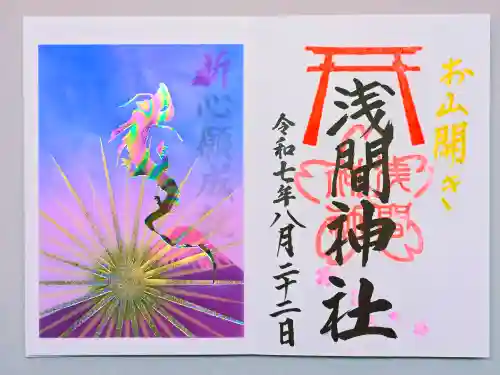 お山開き
浅間神社
令和七年八月二十二日
浅間
神社